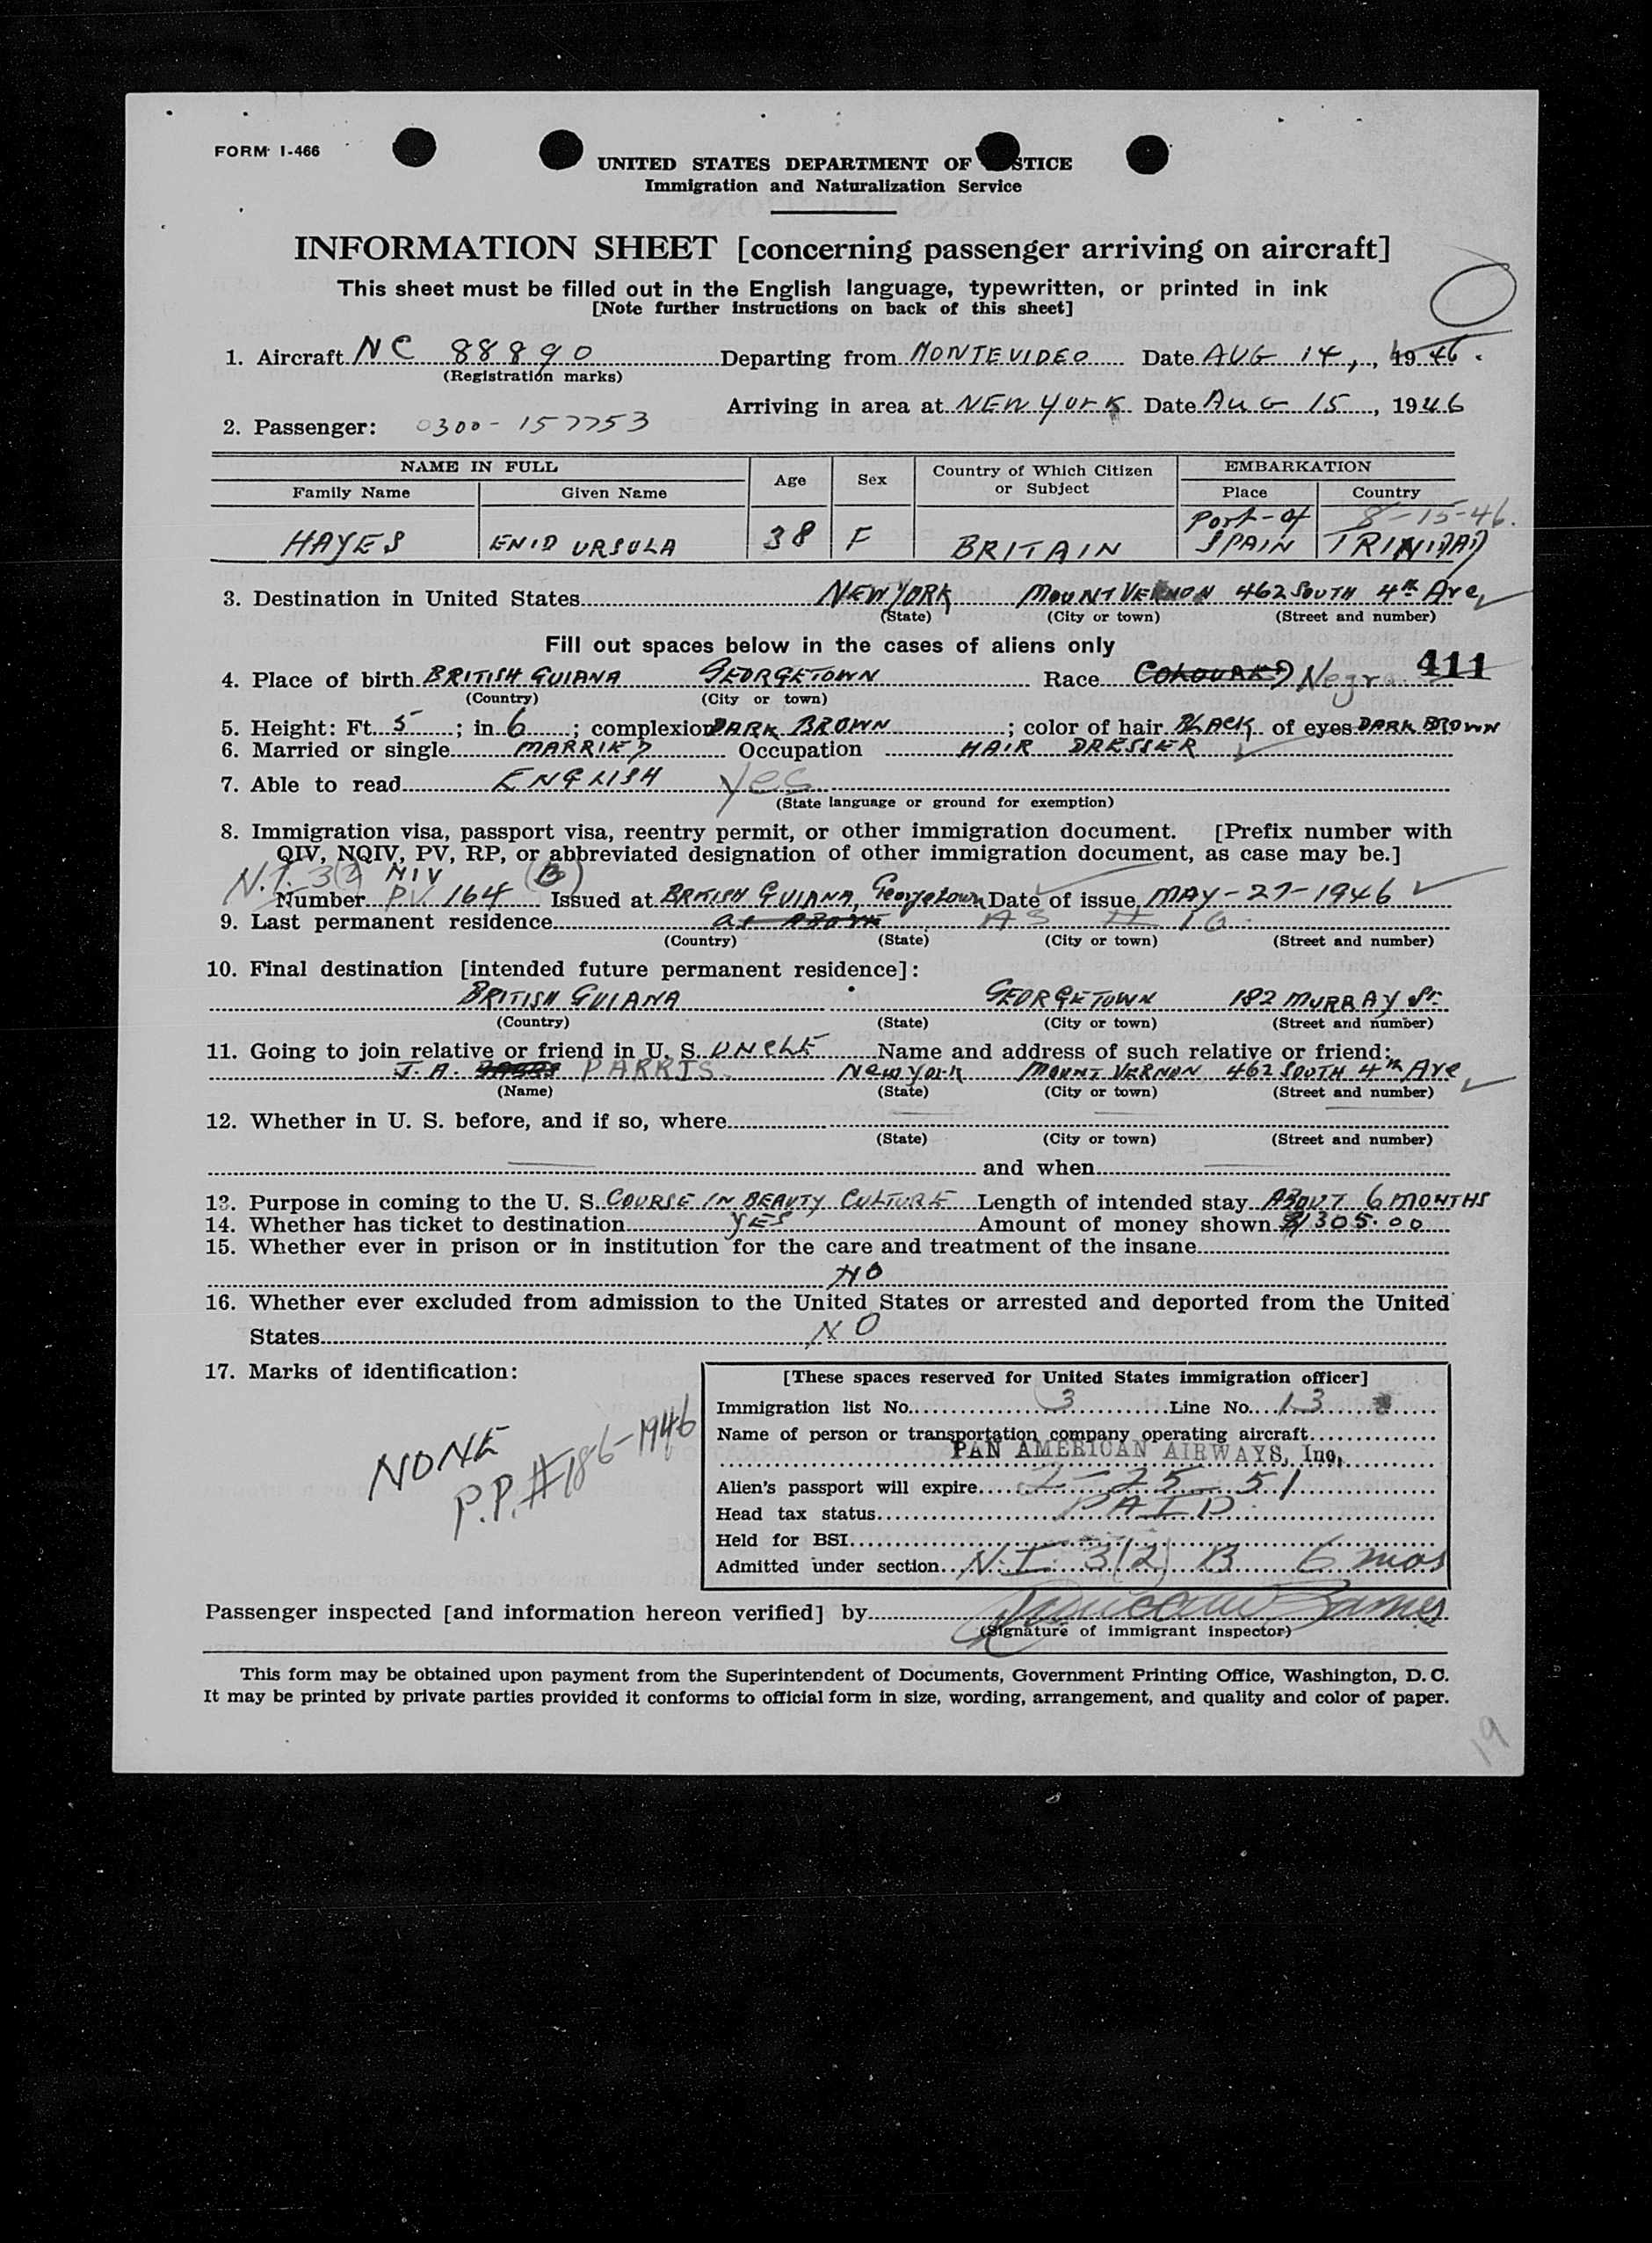 FORM I-466
UNITED STATES DEPARTMENT OF STICE
Immigration and Naturalization Service
INFORMATION SHEET [concerning passenger arriving on aircraft]
This sheet must be filled out in the English language, typewritten, or printed in ink
[Note further instructions on back of this sheet]
1. Aircraft NC 88890 Departing from MONTEVIDEO Date AUG 14, 1946.
(Registration marks)
Arriving in area at NEW YORK Date AUG 15, 1946
2. Passenger: 0300-157753
NAME IN FULL Age Sex Country of Which Citizen or Subject EMBARKATION
Family Name Given Name Place Country
8-15-46.
HAYES ENID URSULA 38 F BRITAIN Port-of SPAIN TRINIDAD
3. Destination in United States NEW YORK MOUNT VERNON 462 SOUTH 4th Ave
(State) (City or town) (Street and number)
Fill out spaces below in the cases of aliens only
411
4. Place of birth BRITISH GUIANA GEORGETOWN Race COLOURED Negro
(Country) (City or town)
5. Height: Ft. 5; in. 6; complexion DARK BROWN; color of hair BLACK of eyes DARK BROWN
6. Married or single MARRIED Occupation HAIR DRESSER
7. Able to read ENGLISH Yes
(State language or ground for exemption)
8. Immigration visa, passport visa, reentry permit, or other immigration document. [Prefix number with
QIV, NQIV, PV, RP, or abbreviated designation of other immigration document, as case may be.]
N.I. 3(2) NIV (B)
Number PV 164 Issued at BRITISH GUIANA, Georgetown Date of issue MAY-27-1946
9. Last permanent residence as ABOVE AS # 10
(Country) (State) (City or town) (Street and number)
10. Final destination [intended future permanent residence]:
BRITISH GUIANA GEORGETOWN 182 MURRAY St.
(Country) (State) (City or town) (Street and number)
11. Going to join relative or friend in U. S. UNCLE Name and address of such relative or friend:
J. A. PARRIS New York MOUNT VERNON 462 SOUTH 4th Ave
(Name) (State) (City or town) (Street and number)
12. Whether in U. S. before, and if so, where
(State) (City or town) (Street and number)
and when
13. Purpose in coming to the U. S. COURSE IN BEAUTY CULTURE Length of intended stay ABOUT 6 MONTHS
14. Whether has ticket to destination YES Amount of money shown $305.00
15. Whether ever in prison or in institution for the care and treatment of the insane
NO
16. Whether ever excluded from admission to the United States or arrested and deported from the United
States NO
17. Marks of identification:
NONE
P.P. #186-1946
[These spaces reserved for United States immigration officer]
Immigration list No. 3 Line No. 13
Name of person or transportation company operating aircraft
PAN AMERICAN AIRWAYS, Inc.
Alien's passport will expire 2-25-51
Head tax status PAID
Held for BSI
Admitted under section N.I. 3(2) B 6 mos
Passenger inspected [and information hereon verified] by
(Signature of immigrant inspector)
This form may be obtained upon payment from the Superintendent of Documents, Government Printing Office, Washington, D. C.
It may be printed by private parties provided it conforms to official form in size, wording, arrangement, and quality and color of paper.
19